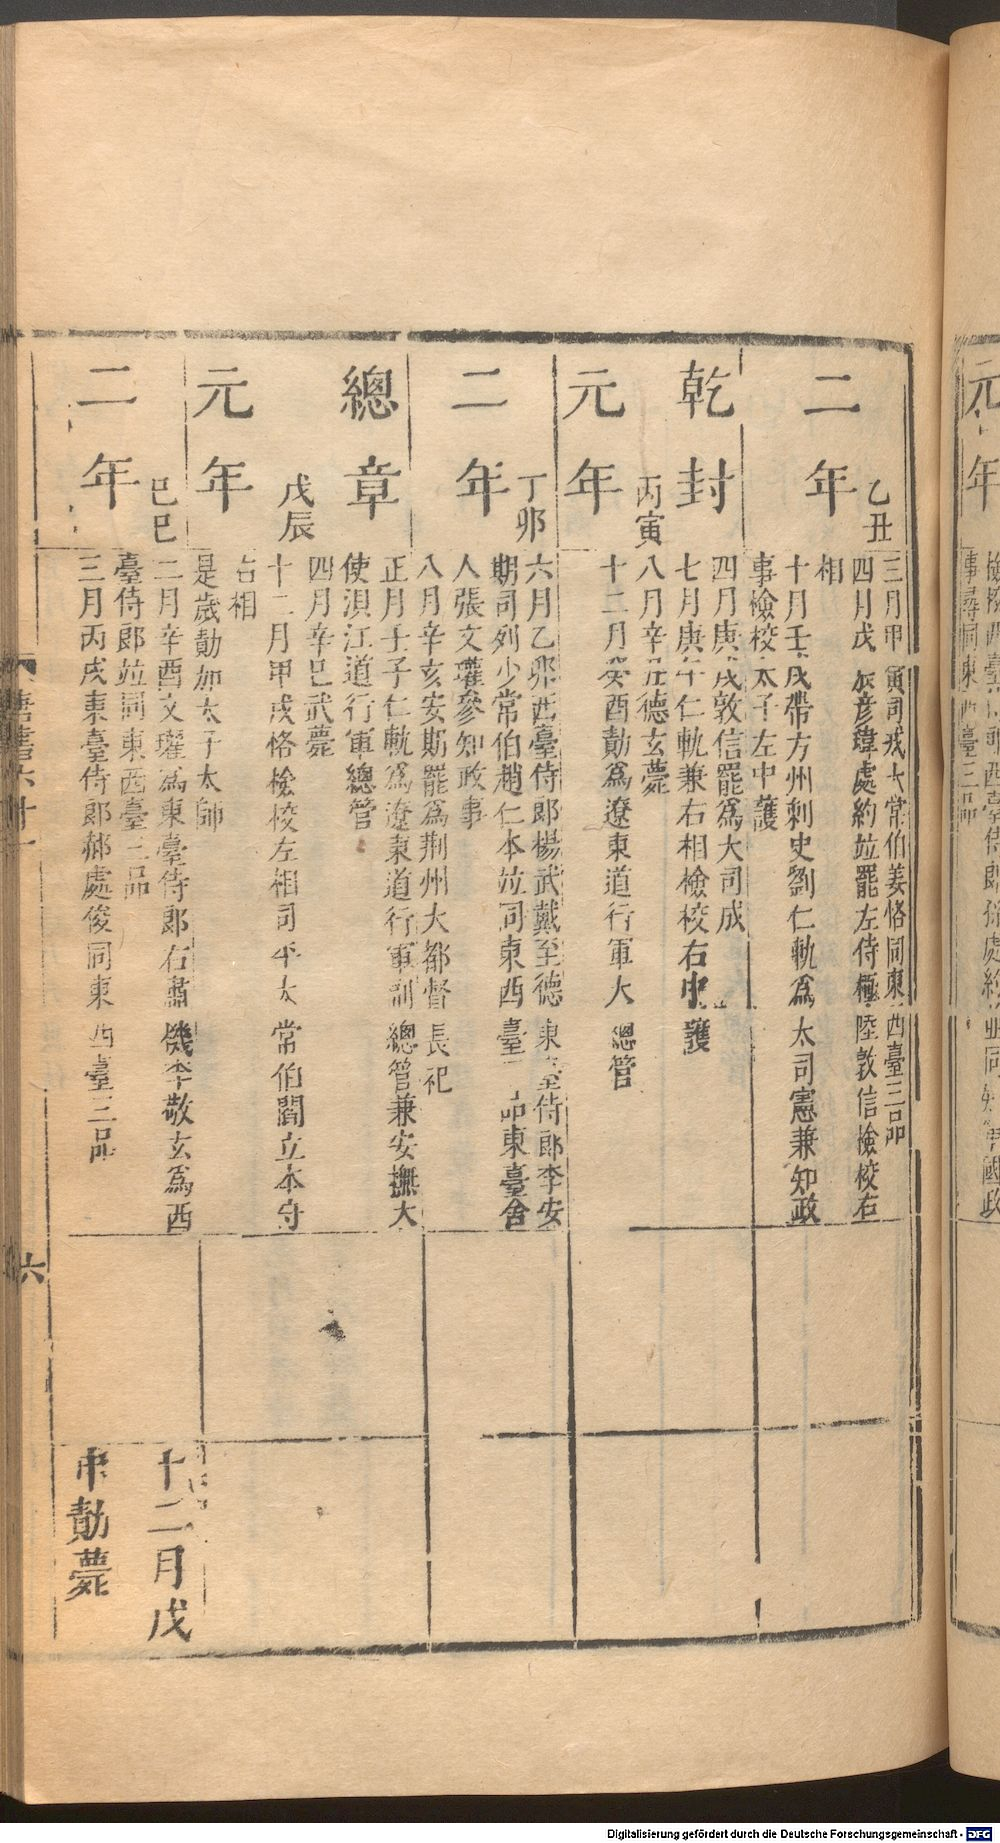 二年
乙丑
三月甲寅司戎太常伯姜恪同東西臺三品
四月戊辰彥瑋處約竝罷左侍極陸敦信檢校右
相
十月壬戌帶方州刺史劉仁軌為大司憲兼知政
事檢校太子左中護
乾封
元年
丙寅
四月庚戌敦信罷為大司成
七月庚午仁軌兼右相檢校右中護
八月辛丑德玄薨
十二月癸酉勣為遼東道行軍大總管
二年
丁卯
六月乙卯西臺侍郎楊武戴至德東臺侍郎李安
期司列少常伯趙仁本竝同東西臺品東臺舍
人張文瓘參知政事
八月辛亥安期罷為荆州大都督長祀
總章
元年
戊辰
正月壬子仁軌為遼東道行軍副總管兼安撫大
使浿江道行軍總管
四月辛巳武薨
十二月甲戌恪檢校左相司平太常伯閻立本守
右相
是歲勣加太子太師
二年
巳巳
二月辛酉文瓘為東臺侍郎右肅機李敬玄為西
臺侍郎竝同東西臺三品
三月丙戌東臺侍郎郝處俊同東西臺三品
十二月戊
申勣薨
六
元年
Digitalisierung gefördert durch die Deutsche Forschungsgemeinschaft - DFG